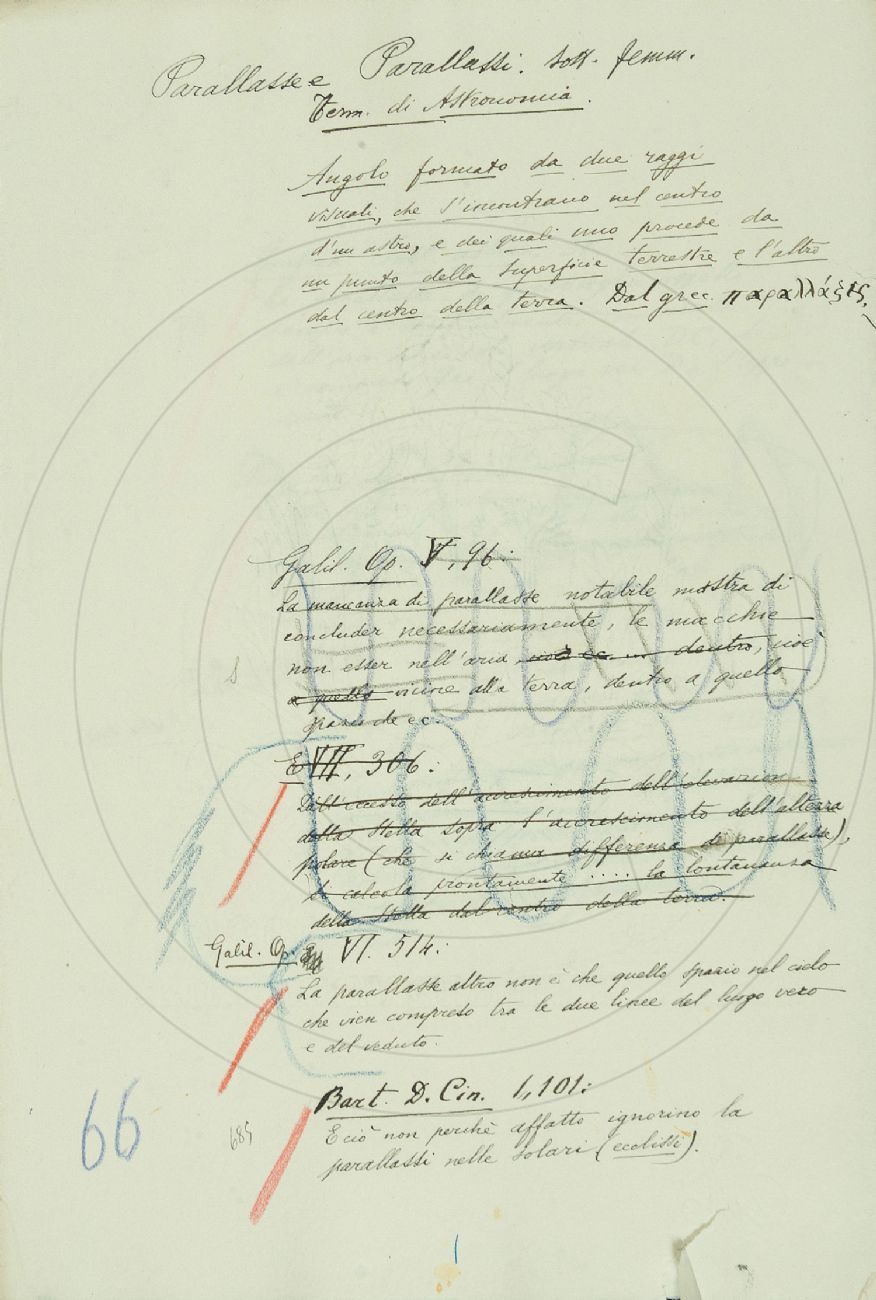 Parallasse e Parallassi. Sost. femm.
Term. di Astronomia.
Angolo formato da due raggi
visuali, che s'incontrano nel centro
d'un astro, e dei quali uno procede da
un punto della superficie terrestre e l'altro
dal centro della terra. Dal grec. παραλλάξις,
Galil. Op. V, 96:
La mancanza di parallasse notabile mostra di
concluder necessariamente, le macchie
non esser nell'aria, cioè ec. ... dentro, cioè
a quello vicine alla terra, dentro a quello
spazio che ec.
E VII, 306:
Dall'eccesso dell'accrescimento dell'elevazion
della stella sopra l'accrescimento dell'altezza
polare (che si chiama differenza di parallasse),
si calcola prontamente .... la lontananza
della stella dal centro della terra.
Galil. Op. VI. 514:
La parallasse altro non è che quello spazio nel cielo
che vien compreso tra le due linee del luogo vero
e del veduto.
66
685
Bart. D. Cin. 1, 101:
E ciò non perchè affatto ignorino la
parallassi nelle solari (ecclissi).